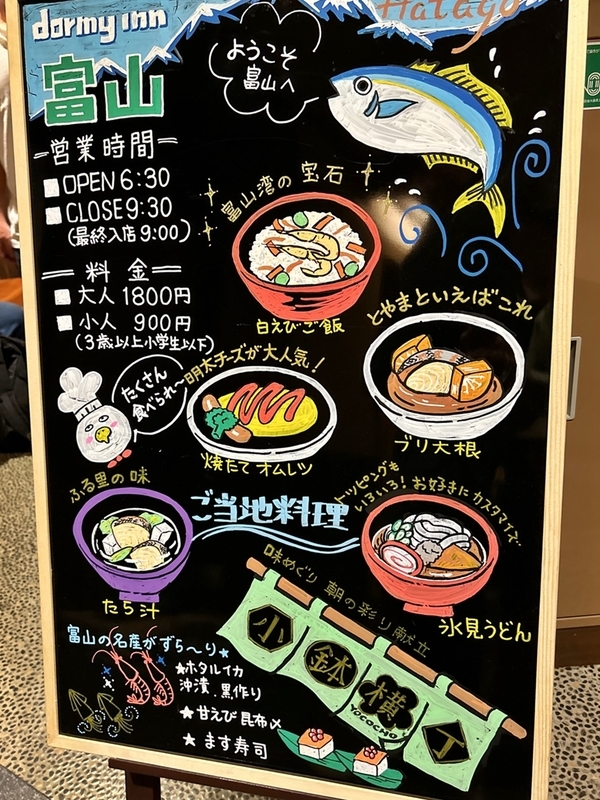 dormy inn
Hatago
富山
ようこそ
富山へ
営業時間
OPEN 6:30
CLOSE 9:30
(最終入店 9:00)
料金
大人 1800円
小人 900円
(3歳以上小学生以下)
富山湾の宝石
白えびご飯
とやまといえばこれ
ブリ大根
たくさん
食べられ〜
明太チーズが大人気!
焼たて オムレツ
ふる里の味
たら汁
ご当地料理
トッピングも
いろいろ!お好きにカスタマイズ
氷見うどん
味めぐり 朝の彩り献立
小鉢横丁
YOCOCHO
富山の名産がずら〜り★
★ホタルイカ
沖漬.黒作り
★甘えび昆布〆
★ます寿司